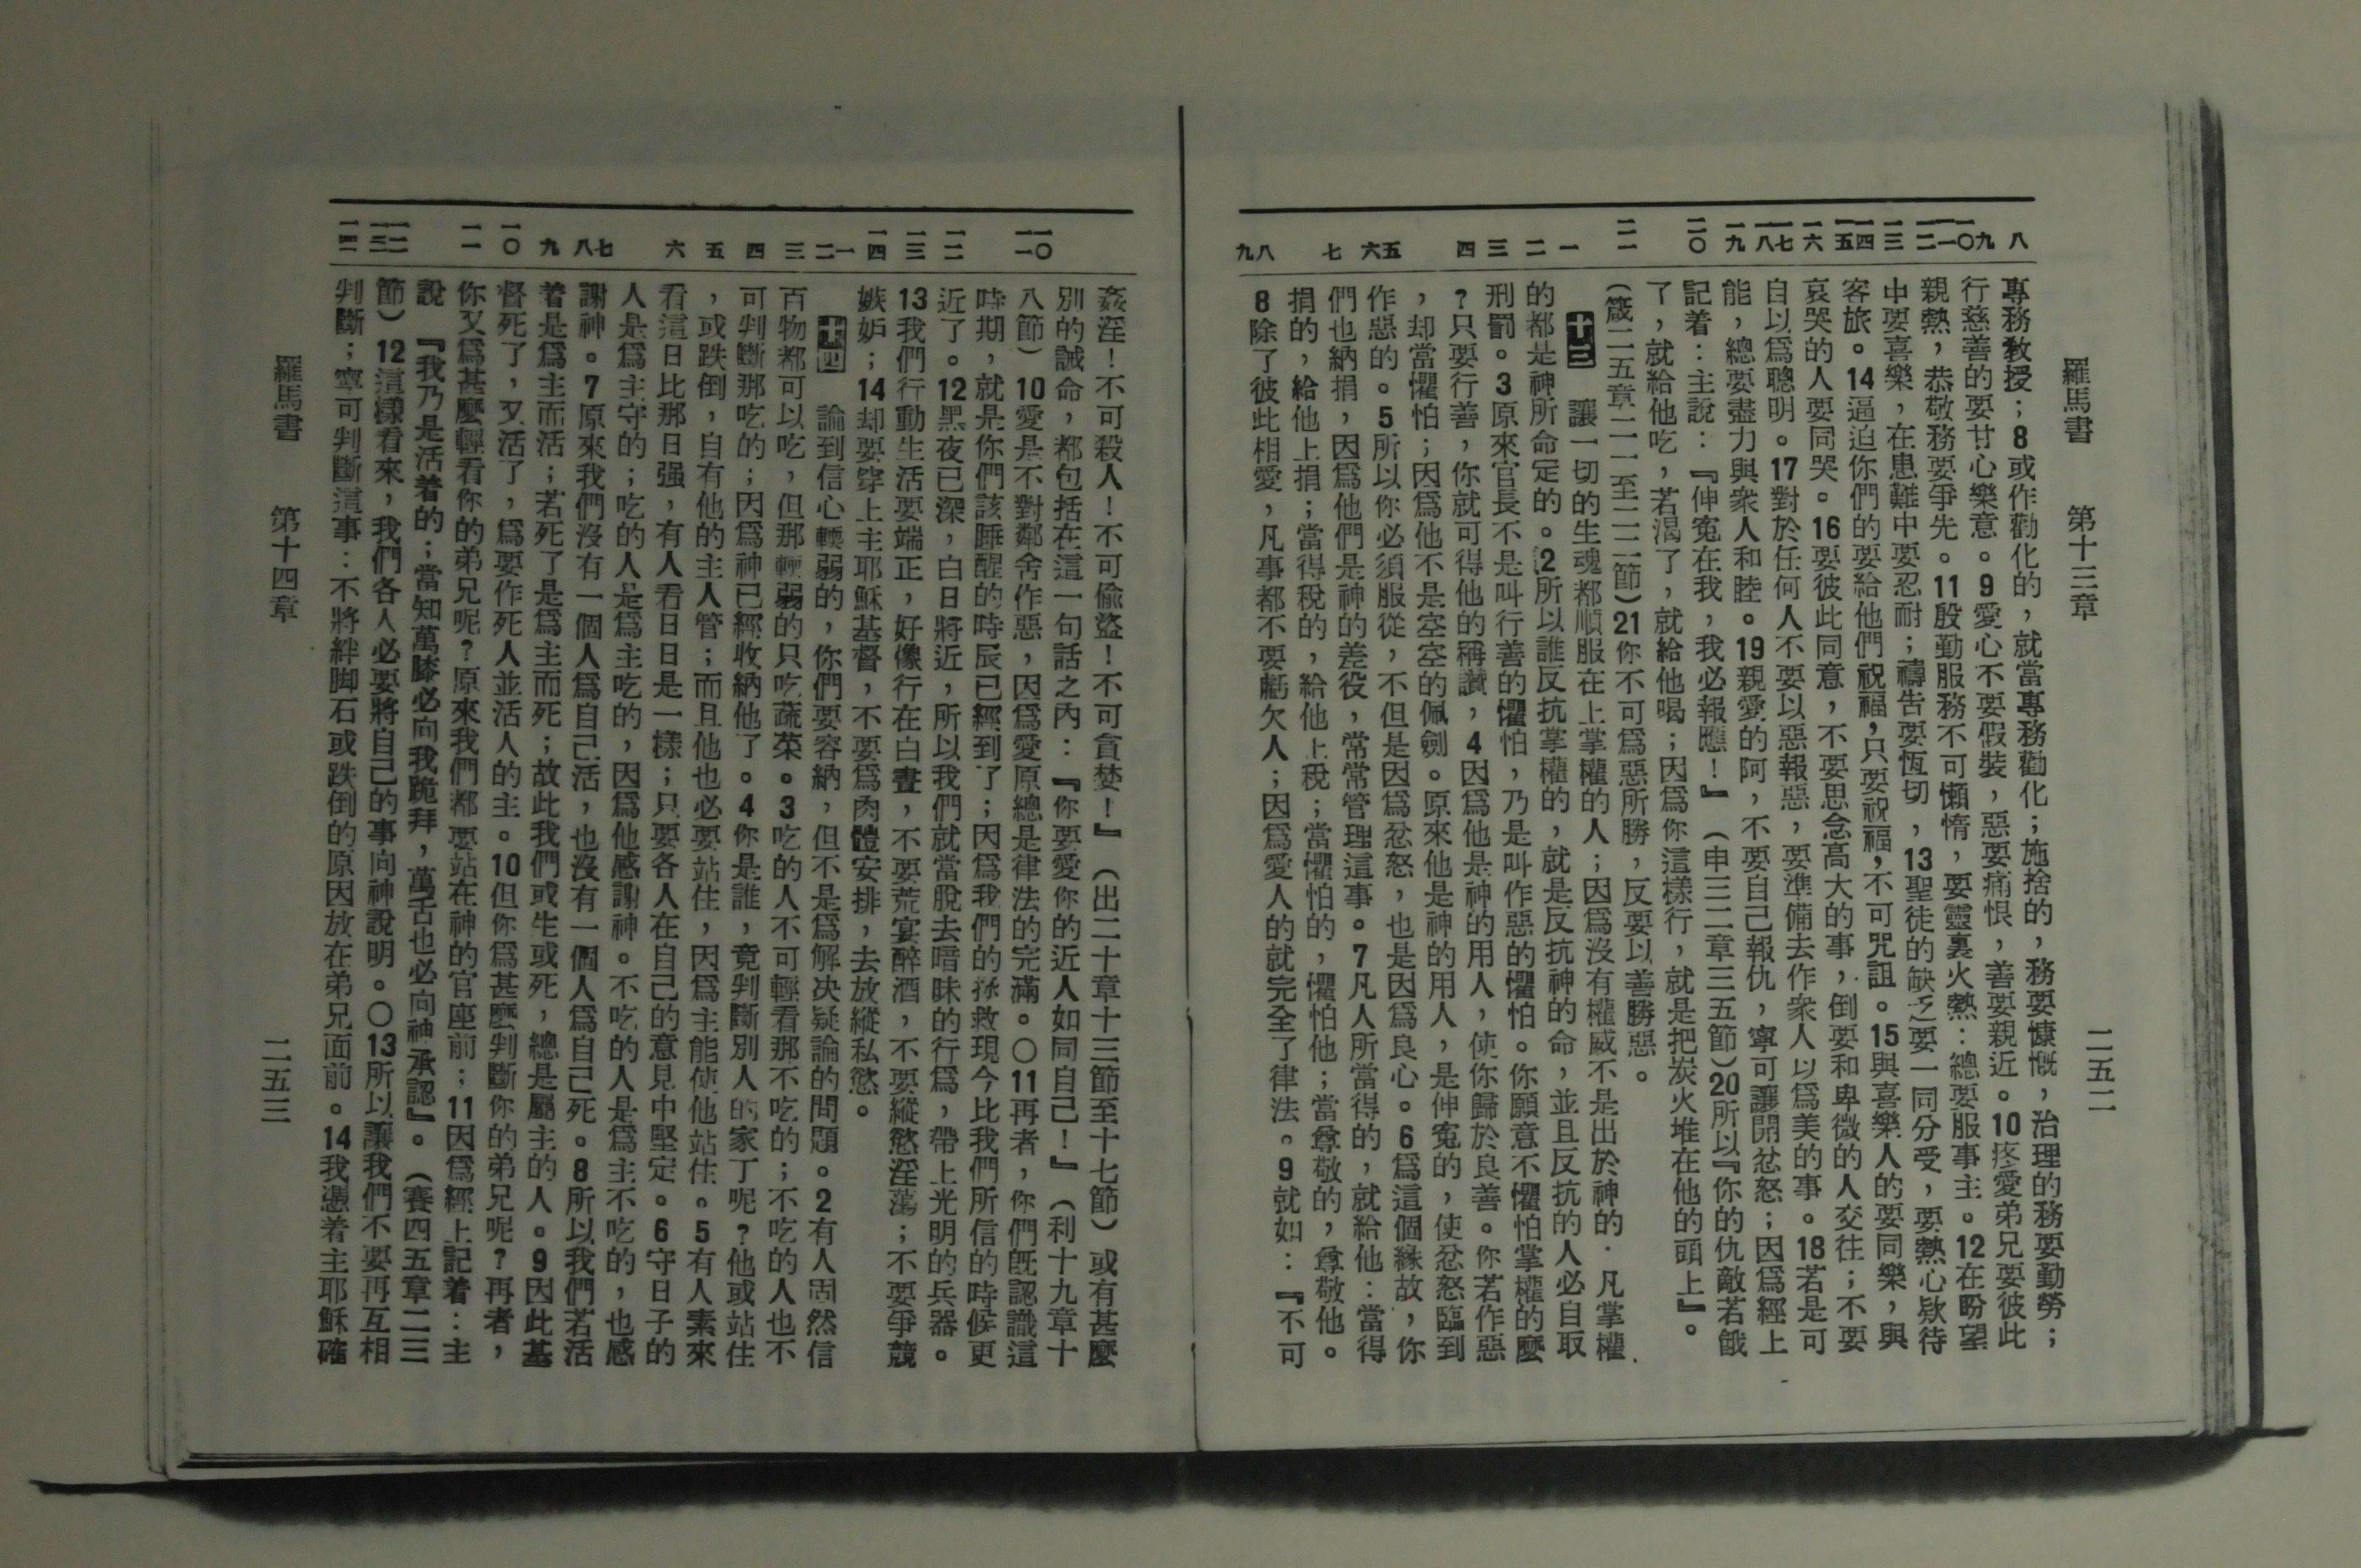 羅馬書　第十三章　二五二
八　九　一〇　一一　一二　一三　一四　一五　一六　一七　一八　一九　二〇　二一　一　二　三　四　五　六　七　八　九
專務敎授；8或作勸化的，就當專務勸化；施捨的，務要慷慨，治理的務要勤勞；
行慈善的要甘心樂意。9愛心不要假裝，惡要痛恨，善要親近。10疼愛弟兄要彼此
親熱，恭敬務要爭先。11殷勤服務不可懶惰，要靈裏火熱：總要服事主。12在盼望
中要喜樂，在患難中要忍耐；禱告要恆切，13聖徒的缺乏要一同分受，要熱心欵待
客旅。14逼迫你們的要給他們祝福，只要祝福，不可咒詛。15與喜樂人的要同樂，與
哀哭的人要同哭。16要彼此同意，不要思念高大的事，倒要和卑微的人交往；不要
自以爲聰明。17對於任何人不要以惡報惡，要準備去作衆人以爲美的事。18若是可
能，總要盡力與衆人和睦。19親愛的阿，不要自己報仇，寧可讓開忿怒；因爲經上
記着：主說：『伸寃在我，我必報應！』（申三二章三五節）20所以『你的仇敵若餓
了，就給他吃，若渴了，就給他喝；因爲你這樣行，就是把炭火堆在他的頭上』。
（箴二五章二一至二二節）21你不可爲惡所勝，反要以善勝惡。
十三　讓一切的生魂都順服在上掌權的人；因爲沒有權威不是出於神的．凡掌權
的都是神所命定的。2所以誰反抗掌權的，就是反抗神的命，並且反抗的人必自取
刑罰。3原來官長不是叫行善的懼怕，乃是叫作惡的懼怕。你願意不懼怕掌權的麼
？只要行善，你就可得他的稱讚，4因爲他是神的用人，使你歸於良善。你若作惡
，却當懼怕；因爲他不是空空的佩劍。原來他是神的用人，是伸寃的，使忿怒臨到
作惡的。5所以你必須服從，不但是因爲忿怒，也是因爲良心。6爲這個緣故，你
們也納捐，因爲他們是神的差役，常常管理這事。7凡人所當得的，就給他：當得
捐的，給他上捐；當得稅的，給他上稅；當懼怕的，懼怕他；當尊敬的，尊敬他。
8除了彼此相愛，凡事都不要虧欠人；因爲愛人的就完全了律法。9就如：『不可
一〇　一一　一二　一三　一四　一　二　三　四　五　六　七　八　九　一〇　一一　一二　一三　一四
姦淫！不可殺人！不可偷盜！不可貪婪！』（出二十章十三節至十七節）或有甚麼
別的誡命，都包括在這一句話之內：『你要愛你的近人如同自己！』（利十九章十
八節）10愛是不對鄰舍作惡，因爲愛原總是律法的完滿。〇11再者，你們旣認識這
時期，就是你們該睡醒的時辰已經到了；因爲我們的拯救現今比我們所信的時候更
近了。12黑夜已深，白日將近，所以我們就當脫去暗昧的行爲，帶上光明的兵器。
13我們行動生活要端正，好像行在白晝，不要荒宴醉酒，不要縱慾淫蕩；不要爭競
嫉妒；14却要穿上主耶穌基督，不要爲肉體安排，去放縱私慾。
十四　論到信心輭弱的，你們要容納，但不是爲解决疑論的問題。2有人固然信
百物都可以吃，但那輭弱的只吃蔬菜。3吃的人不可輕看那不吃的；不吃的人也不
可判斷那吃的；因爲神已經收納他了。4你是誰，竟判斷別人的家丁呢？他或站住
，或跌倒，自有他的主人管；而且他也必要站住，因爲主能使他站住。5有人素來
看這日比那日强，有人看日日是一樣；只要各人在自己的意見中堅定。6守日子的
人是爲主守的；吃的人是爲主吃的，因爲他感謝神。不吃的人是爲主不吃的，也感
謝神。7原來我們沒有一個人爲自己活，也沒有一個人爲自己死。8所以我們若活
着是爲主而活；若死了是爲主而死；故此我們或生或死，總是屬主的人。9因此基
督死了，又活了，爲要作死人並活人的主。10但你爲甚麽判斷你的弟兄呢？再者，
你又爲甚麽輕看你的弟兄呢？原來我們都要站在神的官座前；11因爲經上記着：主
說『我乃是活着的；當知萬膝必向我跪拜，萬舌也必向神承認』。（賽四五章二三
節）12這樣看來，我們各人必要將自己的事向神說明。〇13所以讓我們不要再互相
判斷；寧可判斷這事：不將絆脚石或跌倒的原因放在弟兄面前。14我憑着主耶穌確
羅馬書　第十四章　二五三